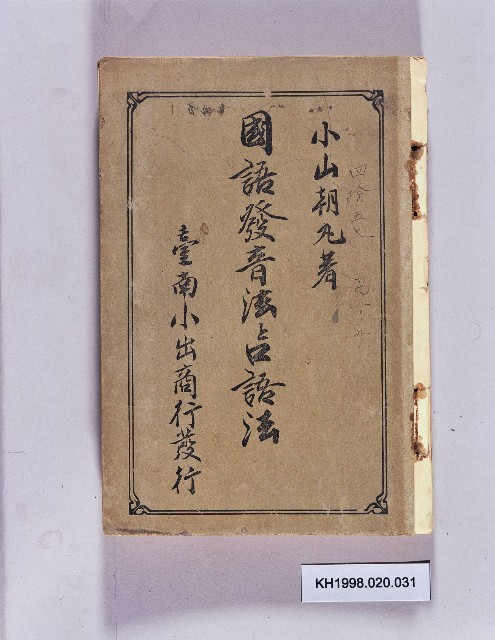 小山朝丸著
國語發音法占語法
臺南小出商行發行
KH1998.020.031